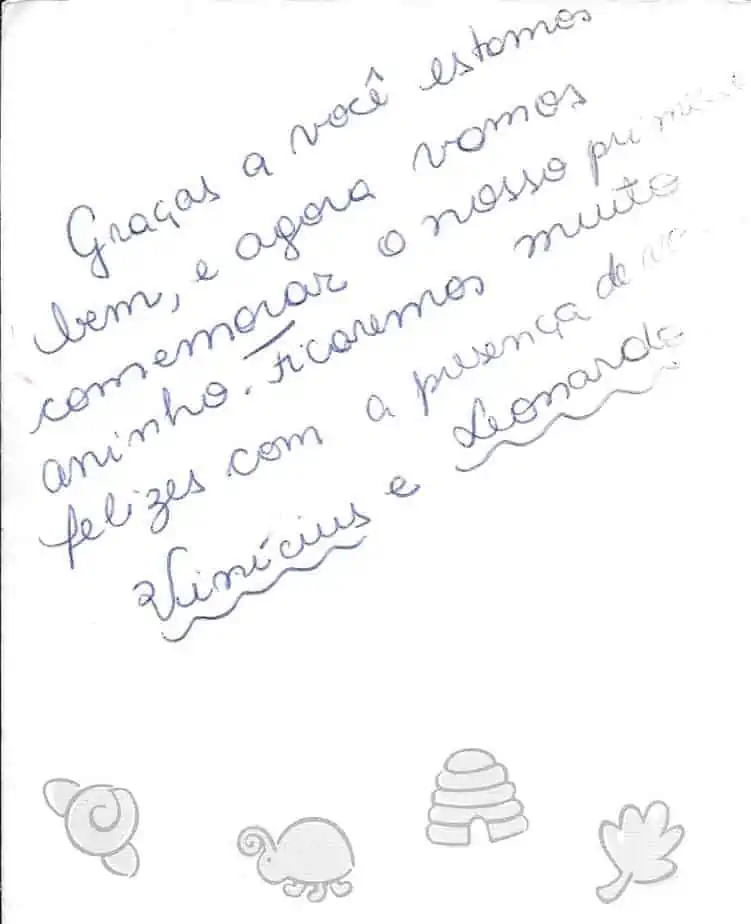 Graças a você estamos
bem, e agora vamos
comemorar o nosso primeiro
aninho. Ficaremos muito
felizes com a presença de
Vinícius e Leonardo